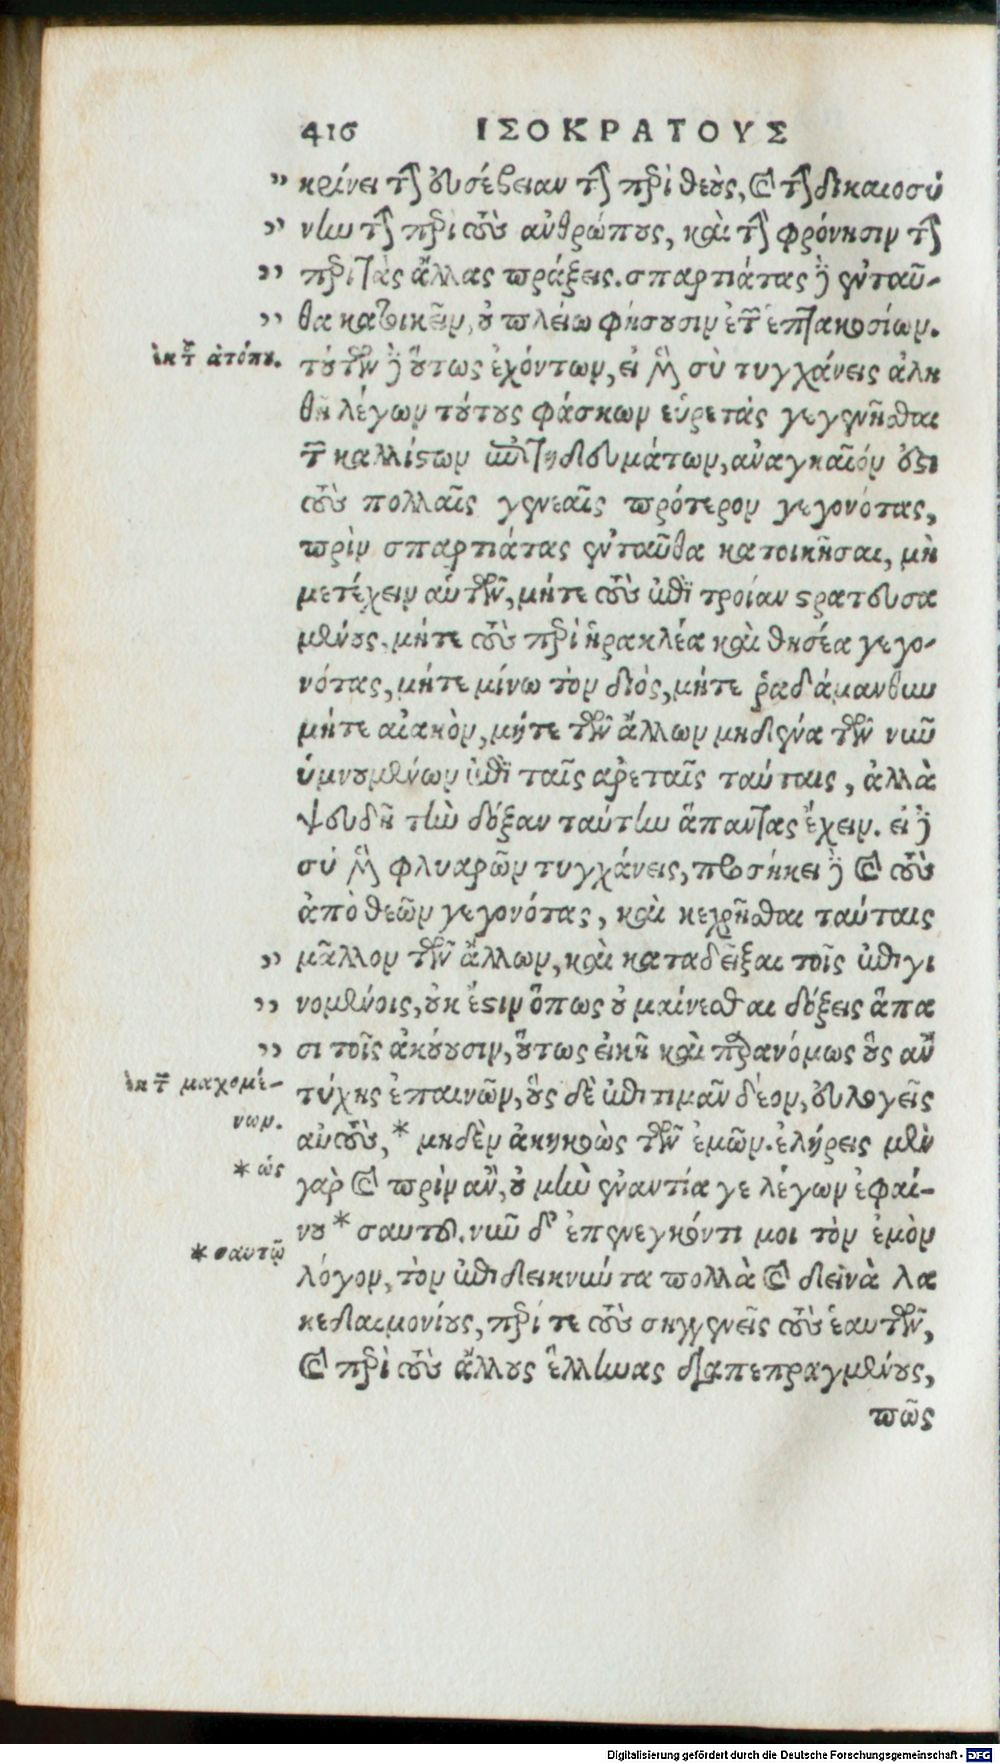 416 ΙΣΟΚΡΑΤΟΥΣ
„ κρίνει τῆς εὐσέβειαν τῆς περὶ θεοὺς, καὶ τῆς δικαιοσύ
„ νην τῆς περὶ τοὺς ἀνθρώπους, καὶ τῆς φρόνησιν τῆς
„ περὶ τὰς ἄλλας πράξεις. σπαρτιάτας δὲ ἐνταῦ-
„ θα κατοικεῖν, οὐ πλείω φήσουσιν ἐτῶν ἑπτακοσίων.
ἐκ τῶν ἀτόπου.
τούτων δὲ οὕτως ἐχόντων, εἰ μὲν σὺ τυγχάνεις ἀλη
θῆ λέγων τούτους φάσκων εὑρετὰς γεγενῆσθαι
τῶν καλλίστων ἐπιτηδευμάτων, ἀναγκαῖόν ἐστι
τοὺς πολλαῖς γενεαῖς πρότερον γεγονότας,
πρὶν σπαρτιάτας ἐνταῦθα κατοικῆσαι, μὴ
μετέχειν αὐτῶν, μήτε τοὺς ἐπὶ τροίαν στρατευσα
μένους, μήτε τοὺς περὶ ἡρακλέα καὶ θησέα γεγο-
νότας, μήτε μίνω τὸν διός, μήτε ῥαδάμανθυν
μήτε αἰακὸν, μήτε τῶν ἄλλων μηδένα τῶν νῦν
ὑμνουμένων ἐπὶ ταῖς ἀρεταῖς ταύταις, ἀλλὰ
ψευδῆ τὴν δόξαν ταύτην ἅπαντας ἔχειν. εἰ δὲ
σύ μὲν φλυαρῶν τυγχάνεις, προσήκει δὲ καὶ τοὺς
ἀπὸ θεῶν γεγονότας, καὶ κεχρῆσθαι ταύταις
„ μᾶλλον τῶν ἄλλων, καὶ καταδεῖξαι τοῖς ἐπιγι
„ νομένοις, οὐκ ἔστιν ὅπως οὐ μαίνεσθαι δόξεις ἅπα
„ σι τοῖς ἀκούουσιν, οὕτως εἰκῆ καὶ παρανόμως οὓς ἂν
ἐκ τῶν μαχομέ-
νων.
τύχης ἐπαινῶν, οὓς δὲ ἐπιτιμᾶν δέον, εὐλογεῖς
αὐτοὺς, * μηδὲν ἀκηκοὼς τῶν ἐμῶν. ἐλήρεις μὲν
* ὡς
γὰρ καὶ πρὶν ἂν, οὐ μὴν ἐναντία γε λέγων ἐφαί-
νου * σαυτοῦ. νῦν δ' ἐπενεγκόντι μοι τὸν ἐμὸν
* σαυτῷ
λόγον, τὸν ἐπιδεικνύντα πολλὰ καὶ δεινὰ λα
κεδαιμονίους, περί τε τοὺς συγγενεῖς τοὺς ἑαυτῶν,
καὶ περὶ τοὺς ἄλλους ἕλληνας διαπεπραγμένους,
πῶς
Digitalisierung gefördert durch die Deutsche Forschungsgemeinschaft - DFG